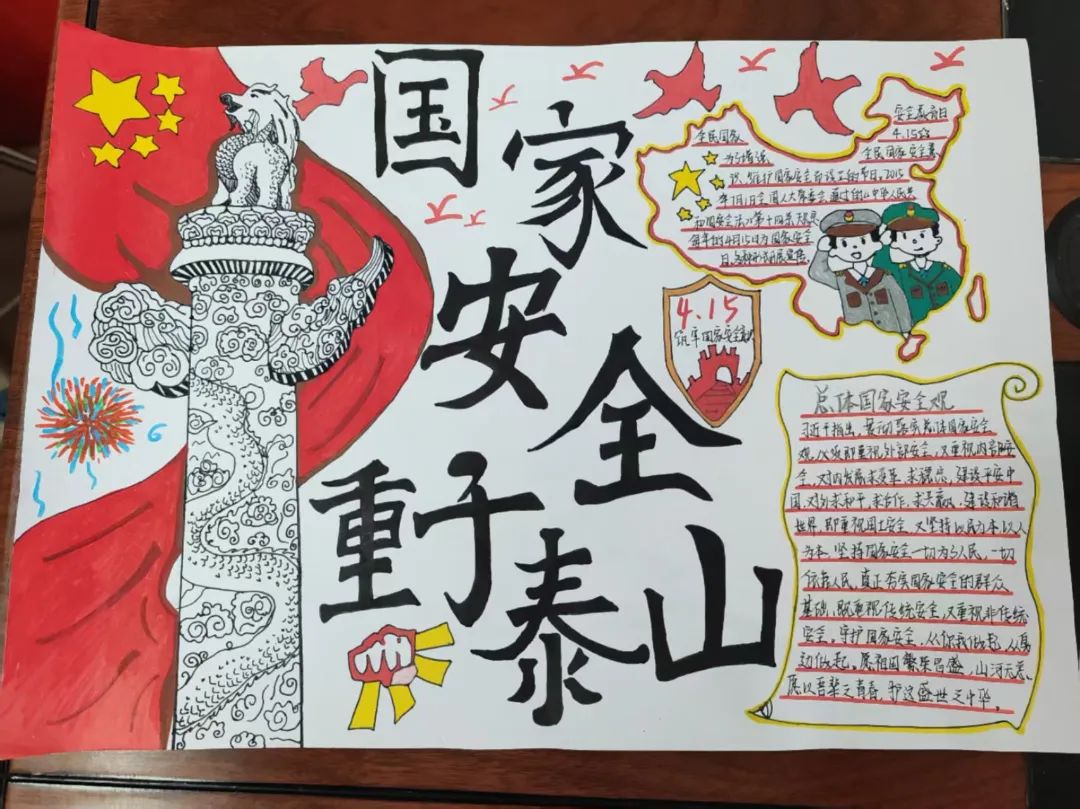 国家
安全
重于
泰山
安全教育日
4.15
全民国家
全民国家安全
为了增强
识,维护国家安全而设立的节日。2015
年7月1日全国人大常委会通过的《中华人民共
和国安全法》第十四条规定
每年的4月15日为国家安全
4.15
筑牢国家安全
总体国家安全观
习近平指出,
观,必须即重视外部安全,又重视内部安
全,对内求发展求变革求稳定,建设平安中
国,对外求和平,求合作,求共赢,建设和谐
世界,即重视国土安全,又坚持以民为本以人
为本,坚持国家安全一切为了人民,一切
依靠人民,真正夯实国家安全的群众
基础,既重视传统安全,又重视非传统
安全,守护国家安全,从你我做起,从身
边做起,愿祖国繁荣昌盛,山河无恙,
愿以吾辈之青春,护这盛世之中华。